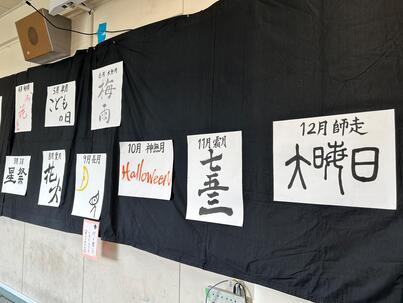 5月 皐月
こども
の日
6月 水無月
梅
雨
星祭
8月 葉月
花
火
9月 長月
10月 神無月
Halloween
11月 霜月
七
五
三
12月 師走
大晦日